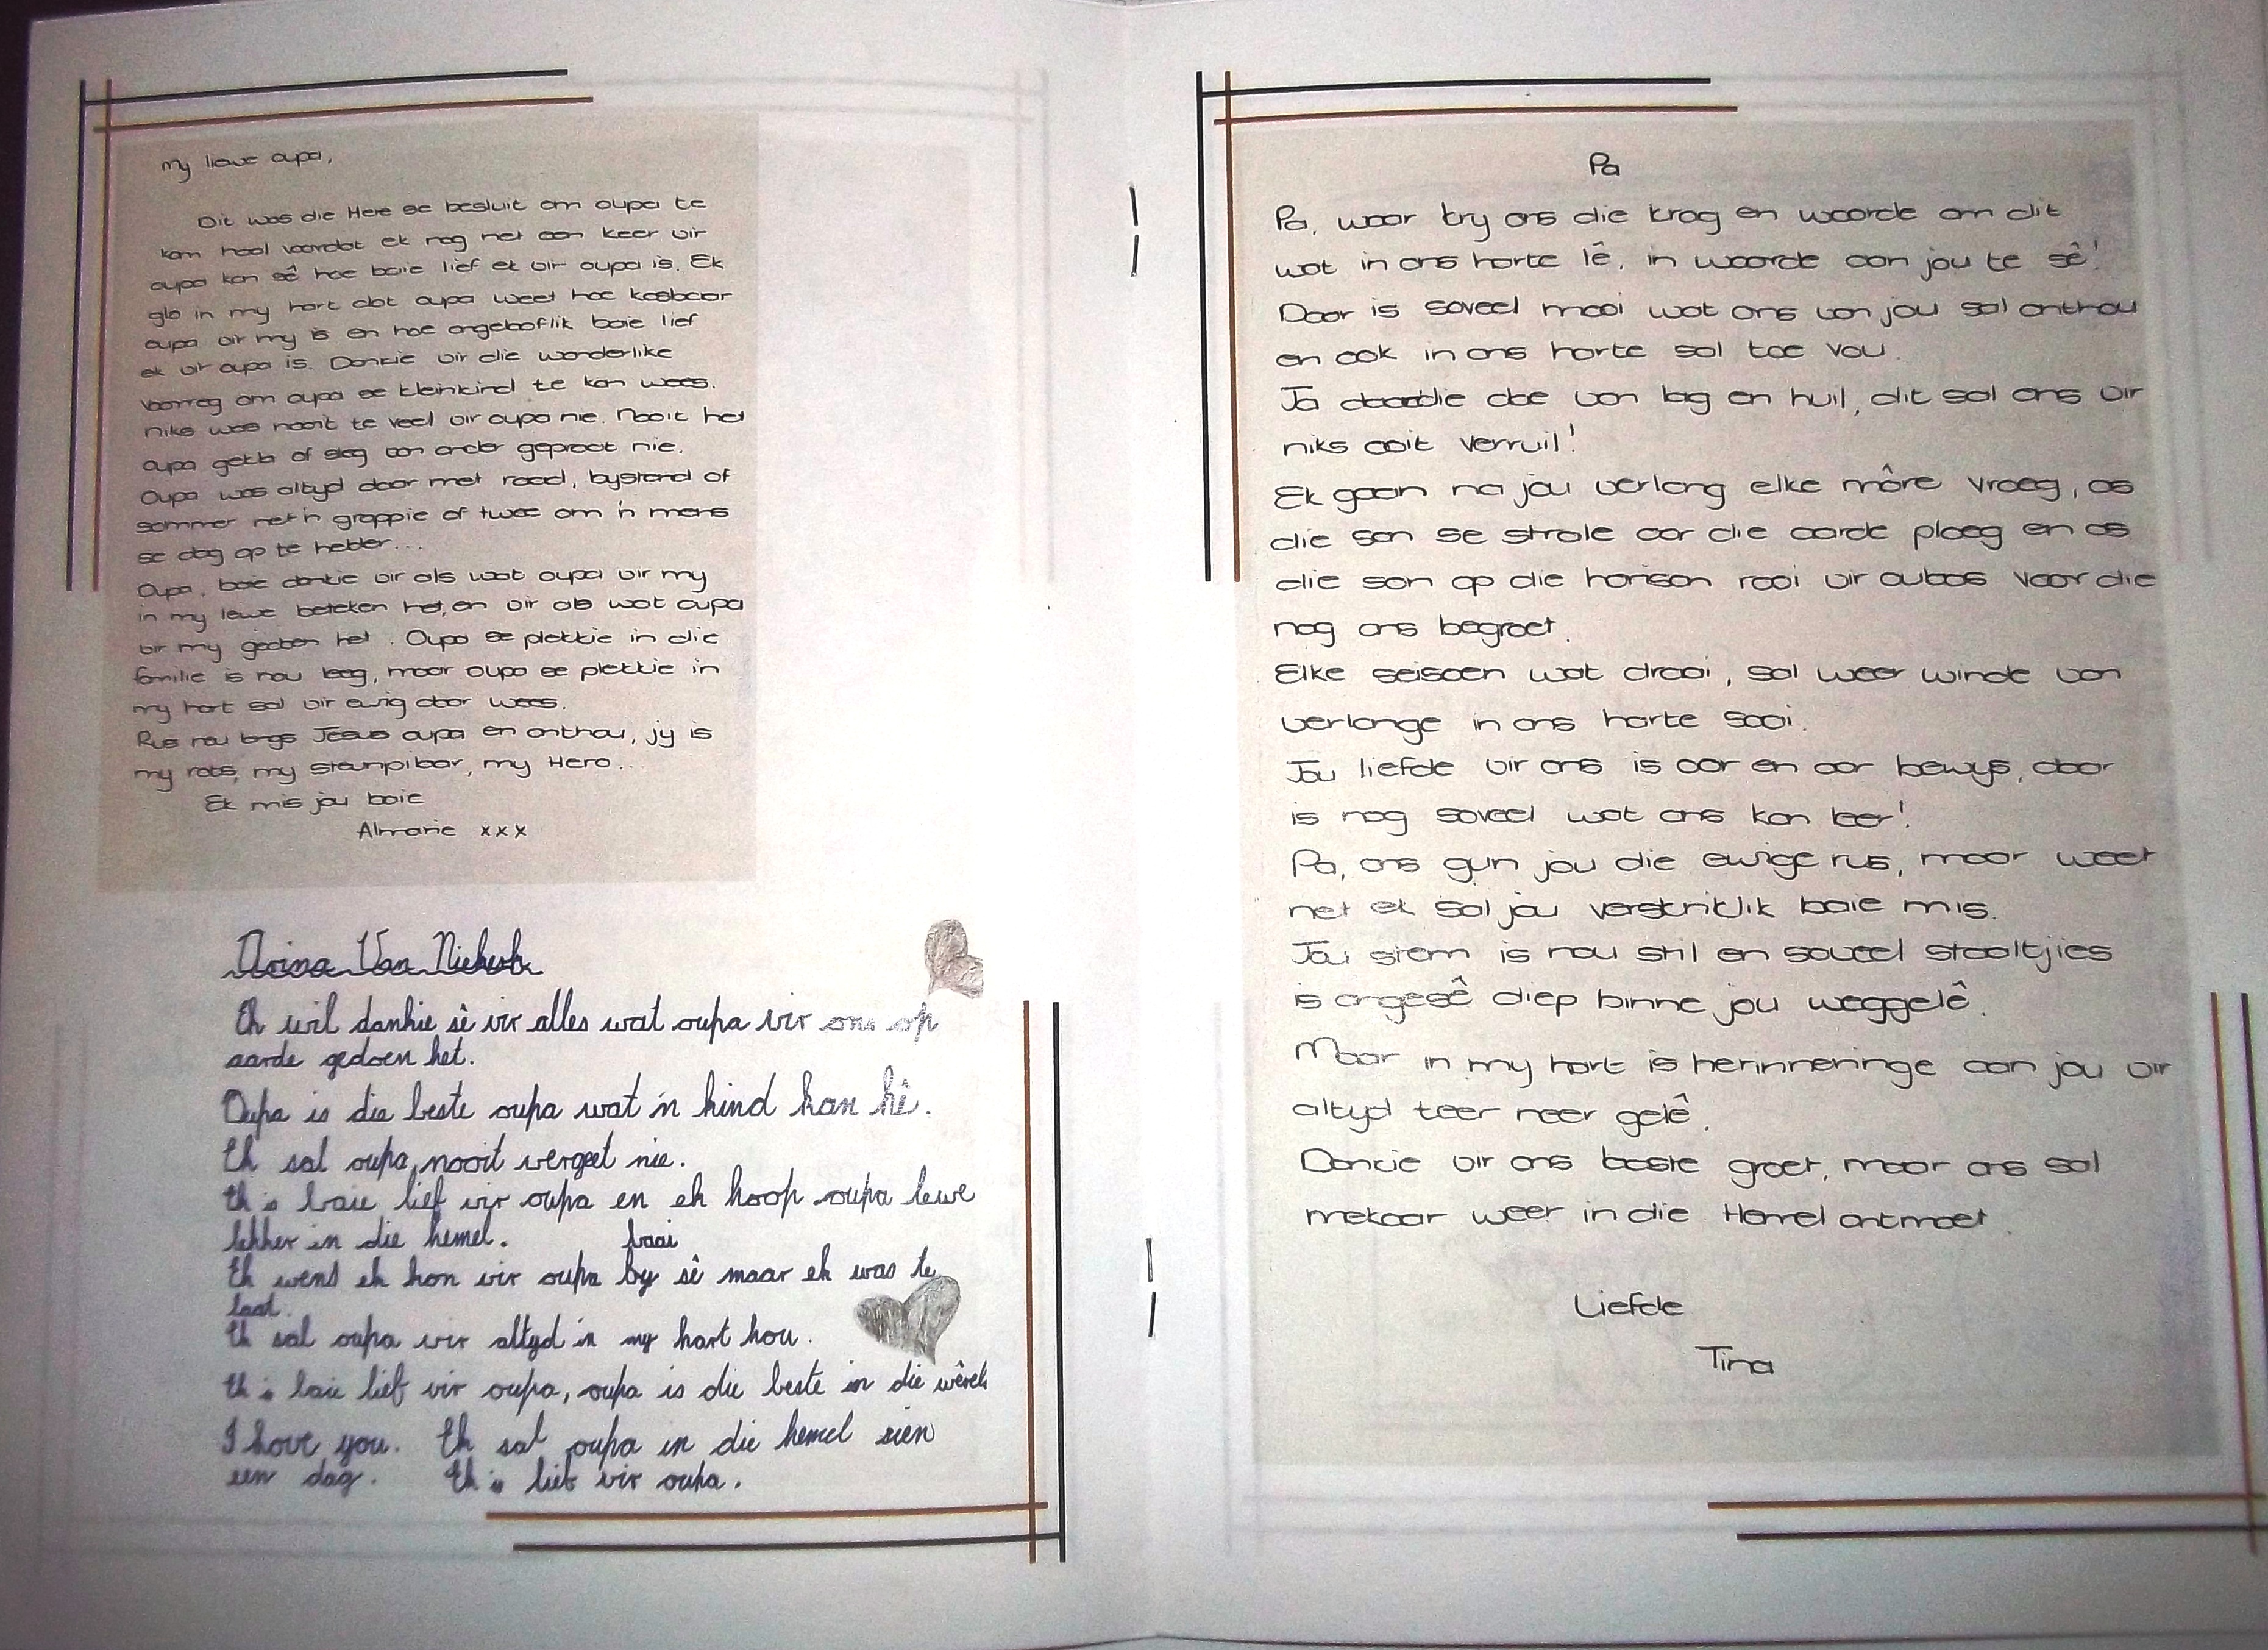 My liewe oupa,
Dit was die Here se besluit om oupa te
kom haal voordat ek nog net een keer vir
oupa kon sê hoe baie lief ek vir oupa is. Ek
glo in my hart dat oupa weet hoe kosbaar
oupa vir my is en hoe ongelooflik baie lief
ek vir oupa is. Dankie vir die wonderlike
voorreg om oupa se kleinkind te kon wees.
niks was nooit te veel vir oupa nie. Nooit het
oupa gekla of sleg van ander gepraat nie.
Oupa was altyd daar met raad, bystand of
sommer net 'n grappie of twee om 'n mens
se dag op te helder...
Oupa, baie dankie vir als wat oupa vir my
in my lewe beteken het, en vir als wat oupa
vir my gedoen het. Oupa se plekkie in die
familie is nou leeg, maar oupa se plekkie in
my hart sal vir ewig daar wees.
Rus nou langs Jesus oupa en onthou, jy is
my rots, my steunpilaar, my Hero...
Ek mis jou baie
Almarie xxx
Arina Van Niekerk
Ek wil dankie sê vir alles wat oupa vir ons op
aarde gedoen het.
Oupa is die beste oupa wat 'n kind kan hê.
Ek sal oupa nooit vergeet nie.
Ek is baie lief vir oupa en ek hoop oupa lewe
lekker in die hemel.
baai
Ek wens ek kon vir oupa by sê maar ek was te
laat.
Ek sal oupa vir altyd in my hart hou.
Ek is baie lief vir oupa, oupa is die beste in die wêreld
I love you. Ek sal oupa in die hemel sien
een dag. Ek is lief vir oupa.
Pa
Pa, waar kry ons die krag en woorde om dit
wat in ons harte lê, in woorde aan jou te sê!
Daar is soveel mooi wat ons van jou sal onthou
en ook in ons harte sal toe vou.
Ja daardie dae van lag en huil, dit sal ons vir
niks ooit verruil!
Ek gaan na jou verlang elke môre vroeg, as
die son se strale oor die aarde ploeg en as
die son op die horison rooi vir oulaas voor die
nag ons begroet.
Elke seisoen wat draai, sal weer winde van
verlange in ons harte saai.
Jou liefde vir ons is oor en oor bewys, daar
is nog soveel wat ons kon leer!
Pa, ons gun jou die ewige rus, maar weet
net ek sal jou verskriklik baie mis.
Jou stem is nou stil en soveel staaltjies
is ongesê diep binne jou weggelê.
Maar in my hart is herinneringe aan jou vir
altyd teer neer gelê.
Dankie vir ons laaste groet, maar ons sal
mekaar weer in die Hemel ontmoet.
Liefde
Tina